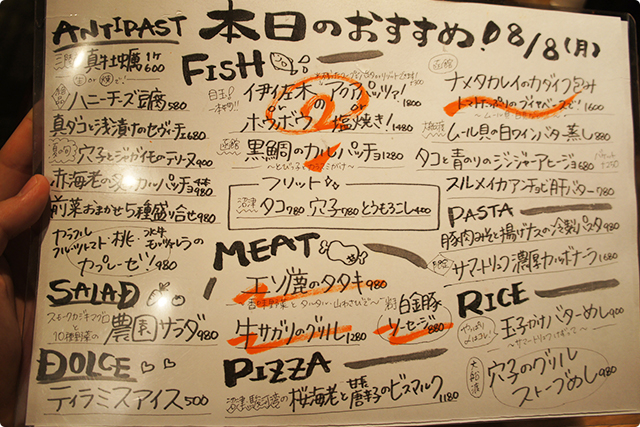 本日のおすすめ! 08/8(月)
ANTIPAST
真牡蠣 1ヶ 600
ハニーチーズ豆腐 580
真ダコと浅漬けのセヴィーチェ 680
穴子とジャガイモのテリーヌ 900
赤海老の炙りカルパッチョ 980
前菜おまかせ5種盛合せ 980
カラフルフルーツトマト・桃・水牛モッツァレラの
カプレーゼ!! 980
SALAD
10種野菜の農園サラダ 980
DOLCE
ティラミスアイス 500
FISH
伊佐木のアクアパッツァ! 1800
ホウボウの塩焼き! 1480
黒鯛のカルパッチョ 1280
フリット
沼津 タコ 780 穴子 780 とうもろこし 400
MEAT
エゾ鹿のタタキ 980
牛サガリのグリル 1280
白金豚ソーセージ 880
PIZZA
桜海老と葉唐辛子のビスマルク 1180
函館
ナメタカレイのカダイフ包み
1600
ムール貝の白ワインバタ蒸し 880
タコと青のりのジンジャーアヒージョ 680
スルメイカアンチョビ肝バター 780
PASTA
豚肉みそと揚げナスの冷製パスタ 980
サマートリュフ濃厚カルボナーラ 1680
RICE
玉子かけバターめし 900
大船渡
穴子のグリル
ストーブめし 980